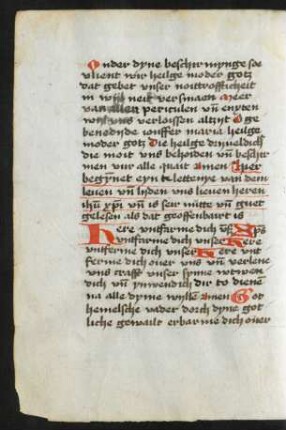 Onder dyne beschirmynge soe
vlient wir heilge moder gotz
dat gebet vnser noittrofficheit
in wyl neit versmaen Meer
van allen periculen vn̄ enyten
wyl vns verloissen altzyt O ge
benedyde iouffer maria heilge
moder gotz Die heilge
die moit vns behoiden vn̄ beschir
men vur alle quait Amen Hier
begynet eyn letterye van dem
leuen vn̄ lyden vns lieuen heren
ihū xp̄i vn̄ is seir nutte vn̄ guet
gelesen als dat geoffenbairt is
Here vntfarme dich vns Xp̄s
vntfarme dich vnser Kere
vntferme dich vnser Here vnt
ferme dich ouer vns vn̄ verlene
vns crafft vnser synne vtwen
dich vn̄ ynwendich dir to diene
na alle dyme wylle Amen Got
hemelsche vader dorch dyne got
liche gewault erbarme dich ouer